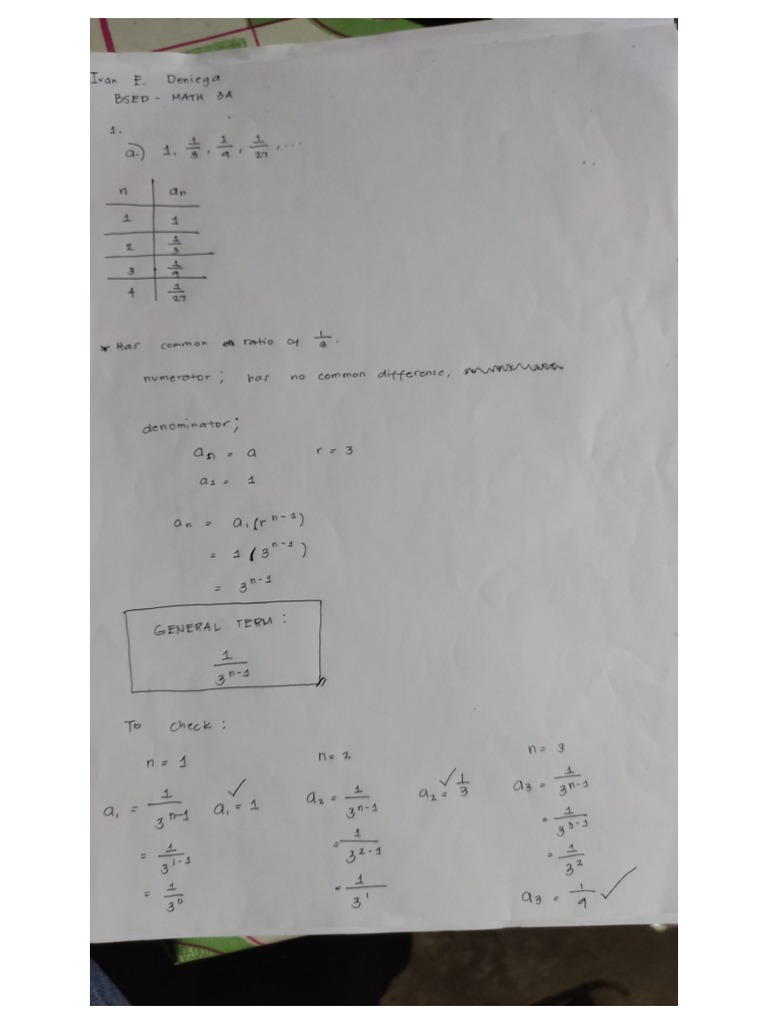 Ivan E. Deniega
BSED - MATH 3A
1.
a.) 1, 1/3, 1/9, 1/27, ...
n | an
1 | 1
2 | 1/3
3 | 1/9
4 | 1/27
* Has common ratio of 1/3.
numerator; has no common difference,
denominator;
an = a r = 3
a1 = 1
an = a1(r^n-1)
= 1(3^n-1)
= 3^n-1
GENERAL TERM:
1/3^n-1
To check:
n = 1 n = 2 n = 3
a1 = 1/3^n-1 a1 = 1 ✓ a2 = 1/3^n-1 a2 = 1/3 ✓ a3 = 1/3^n-1
= 1/3^1-1 = 1/3^2-1 = 1/3^3-1
= 1/3^0 = 1/3^1 = 1/3^2
a3 = 1/9 ✓